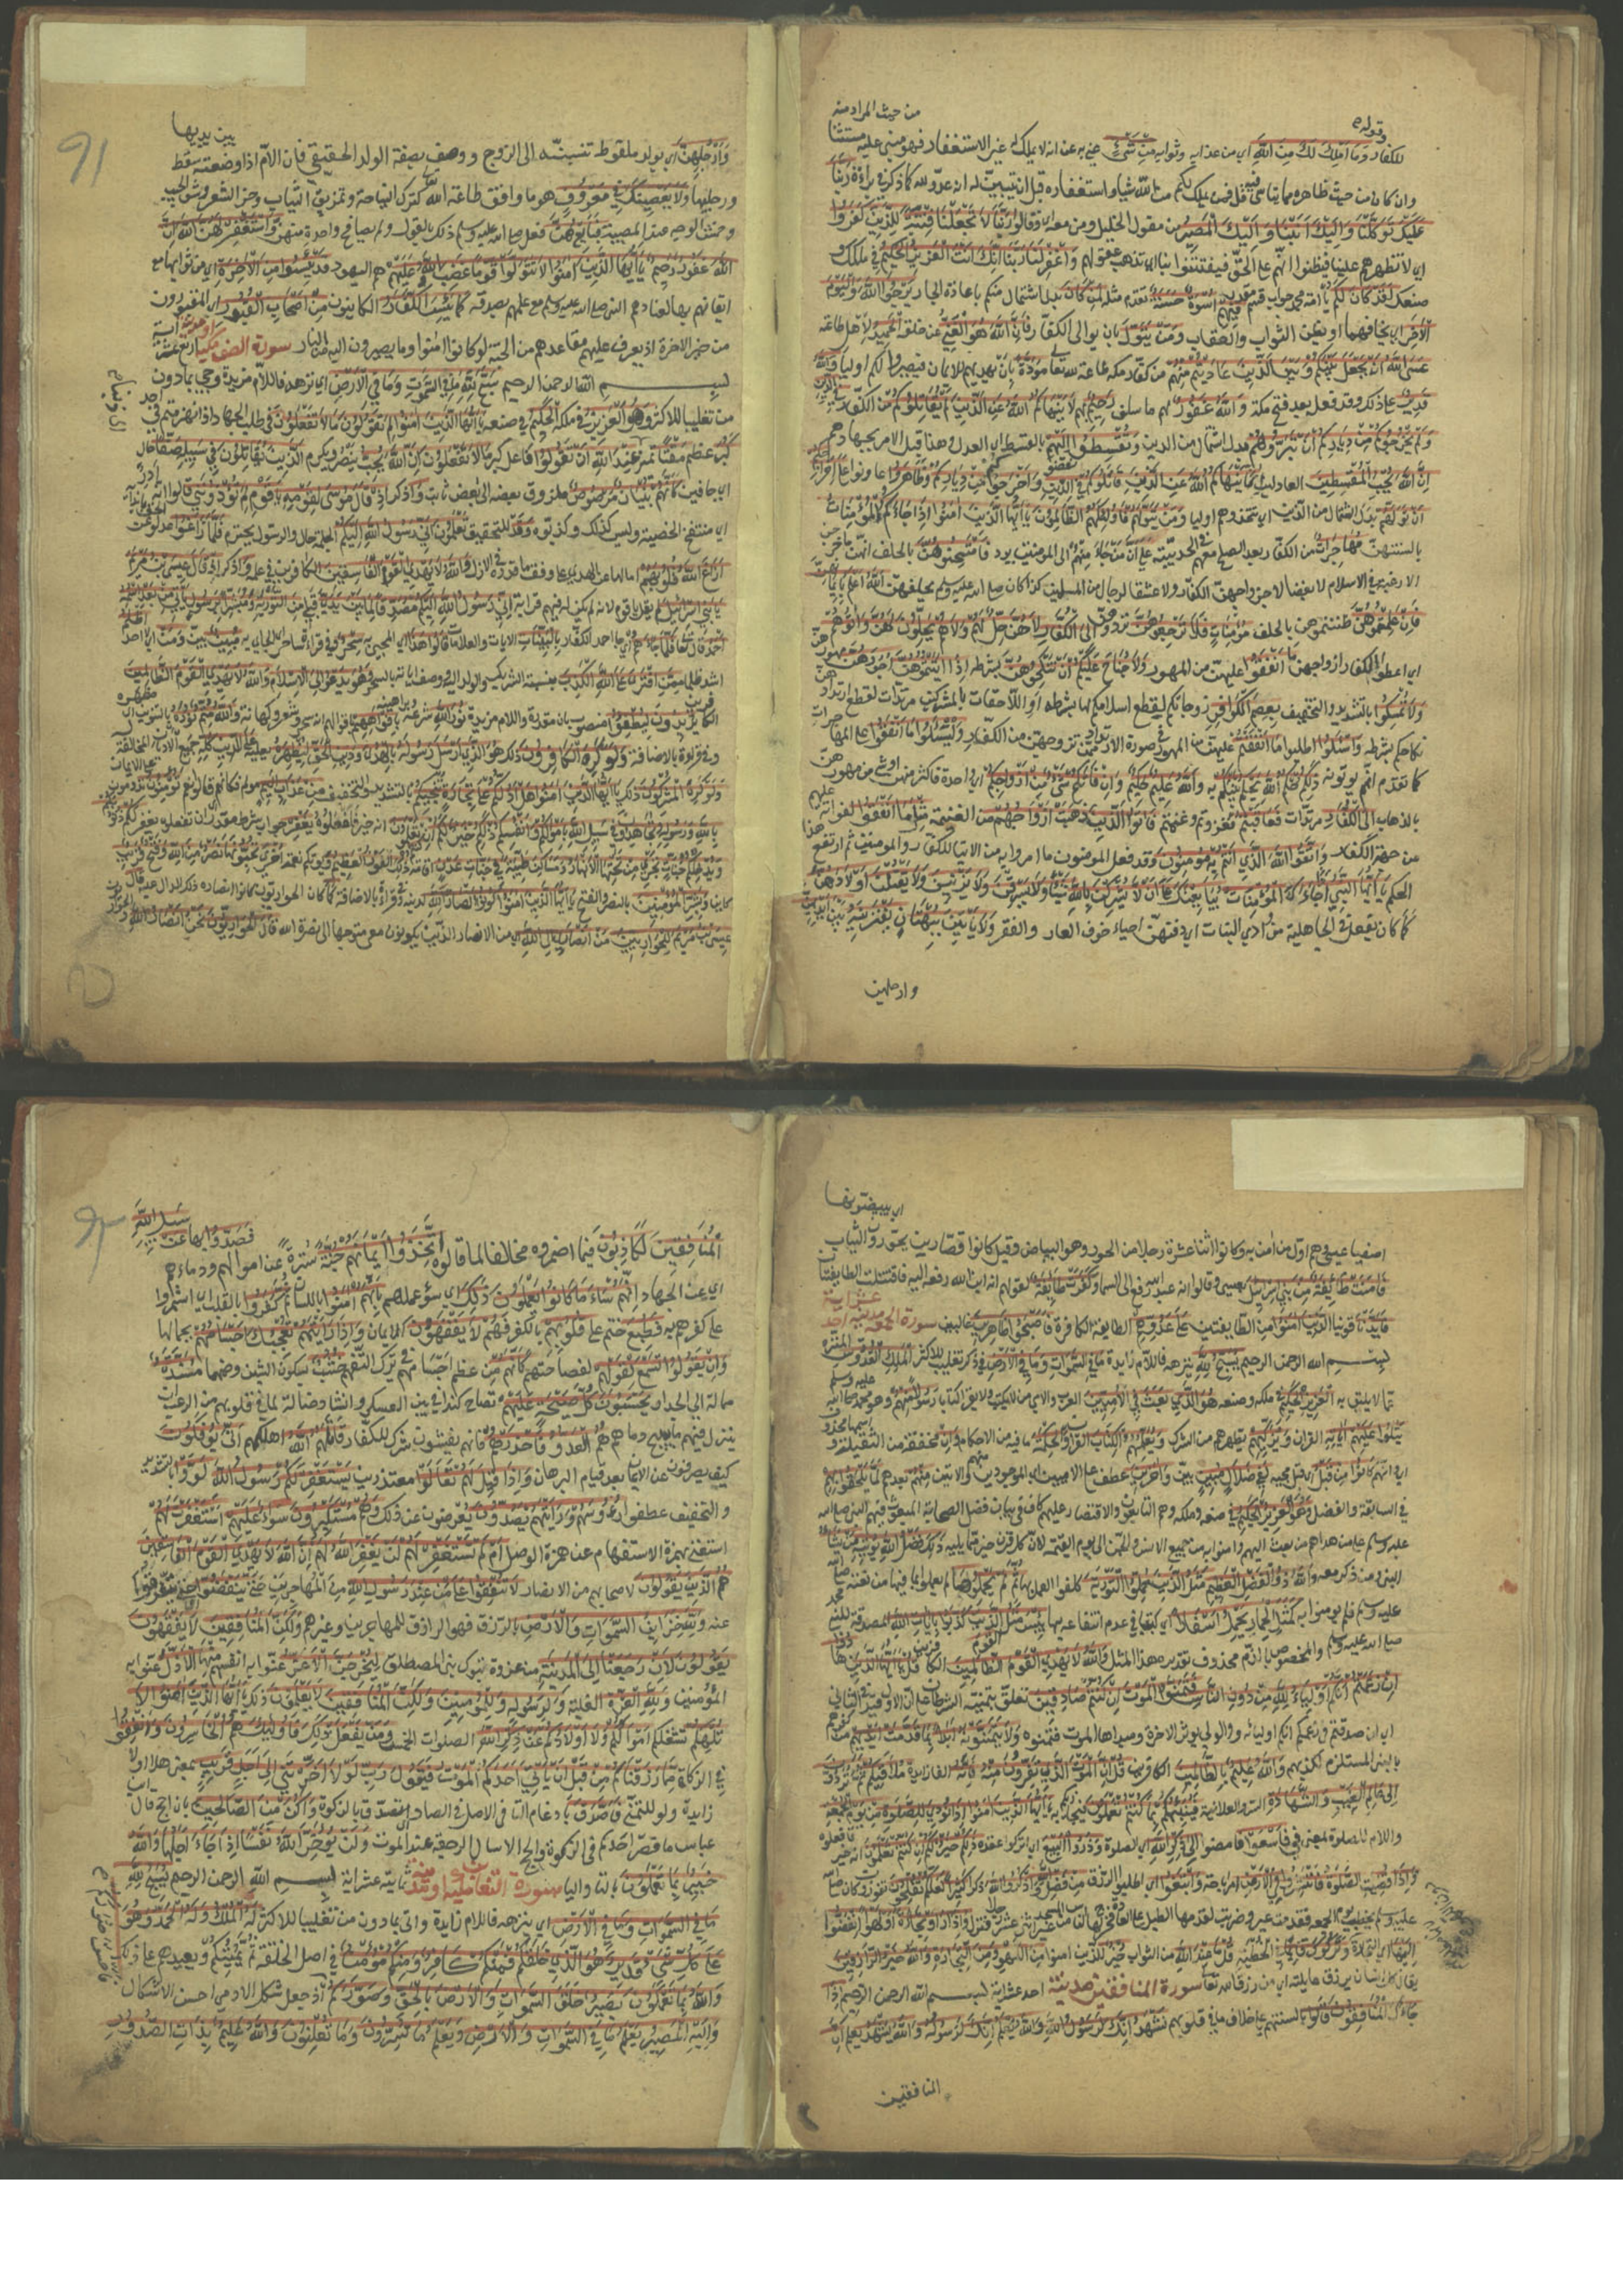 من حيث المراد منه
وقوله
للكفار وَمَا أَمْلِكُ لَكَ مِنَ اللَّهِ اي من عذابه وثوابه مِنْ شَيْءٍ كني به عن انه لا يملك له غير الاستغفار فهو مبني عليه مستثنا
وان كان من حيث ظاهره مما يتاسى فيه قل فمن يملك لكم من الله شيا واستغفاره قبل ان تبين له انه عدو لله كما ذكر في براءة رَبَّنَا
عَلَيْكَ تَوَكَّلْنَا وَإِلَيْكَ أَنَبْنَا وَإِلَيْكَ الْمَصِيرُ من مقول الخليل ومن معه اي وقالوا رَبَّنَا لَا تَجْعَلْنَا فِتْنَةً لِلَّذِينَ كَفَرُوا
اي لا تظهرهم علينا فيظنوا انهم على الحق فيفتتنوا بنا اي تذهب عقولهم وَاغْفِرْ لَنَا رَبَّنَا إِنَّكَ أَنْتَ الْعَزِيزُ الْحَكِيمُ في ملكك و
صنعك لَقَدْ كَانَ لَكُمْ يا امة محمد جواب قسم مقدر فِيهِمْ أُسْوَةٌ حَسَنَةٌ تقدم مثله لِمَنْ كَانَ بدل اشتمال من كم باعادة الجار يَرْجُو اللَّهَ وَالْيَوْمَ
الْآخِرَ اي يخافهما او يظن الثواب والعقاب وَمَنْ يَتَوَلَّ بان يوالي الكفار فَإِنَّ اللَّهَ هُوَ الْغَنِيُّ عن خلقه الْحَمِيدُ لاهل طاعته
عَسَى اللَّهُ أَنْ يَجْعَلَ بَيْنَكُمْ وَبَيْنَ الَّذِينَ عَادَيْتُمْ مِنْهُمْ من كفار مكة طاعة لله تعالى مَوَدَّةً بان يهديهم للايمان فيصيروا لكم اوليا وَاللَّهُ
قَدِيرٌ على ذلك وقد فعل بعد فتح مكة وَاللَّهُ غَفُورٌ لهم ما سلف رَحِيمٌ بهم لَا يَنْهَاكُمُ اللَّهُ عَنِ الَّذِينَ لَمْ يُقَاتِلُوكُمْ من الكفار فِي الدِّينِ
وَلَمْ يُخْرِجُوكُمْ مِنْ دِيَارِكُمْ أَنْ تَبَرُّوهُمْ بدل اشتمال من الذين وَتُقْسِطُوا إِلَيْهِمْ بالقسط اي العدل وهذا قبل الامر بجهادهم
إِنَّ اللَّهَ يُحِبُّ الْمُقْسِطِينَ العادلين إِنَّمَا يَنْهَاكُمُ اللَّهُ عَنِ الَّذِينَ قَاتَلُوكُمْ فِي الدِّينِ وَأَخْرَجُوكُمْ مِنْ دِيَارِكُمْ وَظَاهَرُوا عاونوا عَلَى إِخْرَاجِكُمْ
أَنْ تَوَلَّوْهُمْ بدل اشتمال من الذين اي تتخذوهم اوليا وَمَنْ يَتَوَلَّهُمْ فَأُولَئِكَ هُمُ الظَّالِمُونَ يَاأَيُّهَا الَّذِينَ آمَنُوا إِذَا جَاءَكُمُ الْمُؤْمِنَاتُ
بالسنتهن مُهَاجِرَاتٍ من الكفار بعد الصلح معهم في الحديبية على ان من جاء منهم الى المومنين يرد فَامْتَحِنُوهُنَّ بالحلف انهن ما خرجن
الا رغبة في الاسلام لا بغضا لازواجهن الكفار ولا عشقا لرجال من المسلمين كذا كان صلى الله عليه وسلم يحلفهن اللَّهُ أَعْلَمُ بِإِيمَانِهِنَّ
فَإِنْ عَلِمْتُمُوهُنَّ ظننتموهن بالحلف مُؤْمِنَاتٍ فَلَا تَرْجِعُوهُنَّ تردوهن إِلَى الْكُفَّارِ لَا هُنَّ حِلٌّ لَهُمْ وَلَا هُمْ يَحِلُّونَ لَهُنَّ وَآتُوهُمْ
اي اعطوا الكفار ازواجهن مَا أَنْفَقُوا عليهن من المهور وَلَا جُنَاحَ عَلَيْكُمْ أَنْ تَنْكِحُوهُنَّ بشرطه إِذَا آتَيْتُمُوهُنَّ أُجُورَهُنَّ مهورهن
وَلَا تُمْسِكُوا بالتشديد والتخفيف بِعِصَمِ الْكَوَافِرِ زوجاتكم ليقطع اسلامكم لها بشرطه او اللاحقات بالمشركين مرتدات لقطع ارتدادهن
نكاحكم بشرطه وَاسْأَلُوا اطلبوا مَا أَنْفَقْتُمْ عليهن من المهور في صورة الارتداد ممن تزوجهن من الكفار وَلْيَسْأَلُوا مَا أَنْفَقُوا على المهاجرات
كما تقدم انهم يوتونه ذَلِكُمْ حُكْمُ اللَّهِ يَحْكُمُ بَيْنَكُمْ به وَاللَّهُ عَلِيمٌ حَكِيمٌ وَإِنْ فَاتَكُمْ شَيْءٌ مِنْ أَزْوَاجِكُمْ اي واحدة فاكثر منهن او شي من مهورهن
بالذهاب إِلَى الْكُفَّارِ مرتدات فَعَاقَبْتُمْ فغزوتم وغنمتم فَآتُوا الَّذِينَ ذَهَبَتْ أَزْوَاجُهُمْ من الغنيمة مِثْلَ مَا أَنْفَقُوا لفواته عليهم
من جهة الكفار وَاتَّقُوا اللَّهَ الَّذِي أَنْتُمْ بِهِ مُؤْمِنُونَ وقد فعل المومنون ما امروا به من الايتا للكفار والمومنين ثم ارتفع هذا
الحكم يَاأَيُّهَا النَّبِيُّ إِذَا جَاءَكَ الْمُؤْمِنَاتُ يُبَايِعْنَكَ عَلَى أَنْ لَا يُشْرِكْنَ بِاللَّهِ شَيْئًا وَلَا يَسْرِقْنَ وَلَا يَزْنِينَ وَلَا يَقْتُلْنَ أَوْلَادَهُنَّ
كما كان يفعل في الجاهلية من وأد البنات اي دفنهن احياء خوف العار والفقر وَلَا يَأْتِينَ بِبُهْتَانٍ يَفْتَرِينَهُ بَيْنَ أَيْدِيهِنَّ
وارجلهن
91
بين يديها
وَأَرْجُلِهِنَّ اي بولد ملقوط تنسبنه الى الزوج ووصف بصفة الولد الحقيقي فان الام اذا وضعته سقط
ورجليها وَلَا يَعْصِينَكَ فِي مَعْرُوفٍ هو ما وافق طاعة الله كترك النياحة وتمزيق الثياب وجز الشعر وشق الجيب
وخمش الوجه عند المصيبة فَبَايِعْهُنَّ فعل صلى الله عليه وسلم ذلك بالقول ولم يصافح واحدة منهن وَاسْتَغْفِرْ لَهُنَّ اللَّهَ إِنَّ
اللَّهَ غَفُورٌ رَحِيمٌ يَاأَيُّهَا الَّذِينَ آمَنُوا لَا تَتَوَلَّوْا قَوْمًا غَضِبَ اللَّهُ عَلَيْهِمْ هم اليهود قَدْ يَئِسُوا مِنَ الْآخِرَةِ اي من ثوابها مع
ايقانهم بها لعنادهم النبي صلى الله عليه وسلم مع علمهم بصدقه كَمَا يَئِسَ الْكُفَّارُ الكاينون مِنْ أَصْحَابِ الْقُبُورِ اي المقبورون
من خير الاخرة اذ يعرض عليهم مقاعدهم من الجنة لو كانوا امنوا وما يصيرون اليه من النار سورة الصف مكية او مدنية اربع عشرة آية
بسم الله الرحمن الرحيم سَبَّحَ لِلَّهِ مَا فِي السَّمَوَاتِ وَمَا فِي الْأَرْضِ اي نزهه فاللام مزيدة وجي بما دون
من تغليبا للاكثر وَهُوَ الْعَزِيزُ في ملكه الْحَكِيمُ في صنعه يَاأَيُّهَا الَّذِينَ آمَنُوا لِمَ تَقُولُونَ مَا لَا تَفْعَلُونَ في طلب الجهاد اذ انهزمتم في احد
كَبُرَ عظم مَقْتًا تمييز عِنْدَ اللَّهِ أَنْ تَقُولُوا فاعل كبر مَا لَا تَفْعَلُونَ إِنَّ اللَّهَ يُحِبُّ ينصر ويكرم الَّذِينَ يُقَاتِلُونَ فِي سَبِيلِهِ صَفًّا حال
اي صافين كَأَنَّهُمْ بُنْيَانٌ مَرْصُوصٌ ملزوق بعضه الى بعض ثابت وَاذكر إِذْ قَالَ مُوسَى لِقَوْمِهِ يَاقَوْمِ لِمَ تُؤْذُونَنِي قالوا انه ادر
اي منتفخ الخصية وليس كذلك وكذبوه وَقَدْ للتحقيق تَعْلَمُونَ أَنِّي رَسُولُ اللَّهِ إِلَيْكُمْ الجملة حال والرسول يحترم فَلَمَّا زَاغُوا عدلوا عن
أَزَاغَ اللَّهُ قُلُوبَهُمْ امالها عن الهدى على وفق ما قدره في الازل وَاللَّهُ لَا يَهْدِي الْقَوْمَ الْفَاسِقِينَ الكافرين في علمه وَاذكر إِذْ قَالَ عِيسَى بْنُ مَرْيَمَ
يَابَنِي إِسْرَائِيلَ لم يقل يا قوم لانه لم يكن له فيهم قرابة إِنِّي رَسُولُ اللَّهِ إِلَيْكُمْ مُصَدِّقًا لِمَا بَيْنَ يَدَيَّ قبلي مِنَ التَّوْرَاةِ وَمُبَشِّرًا بِرَسُولٍ يَأْتِي مِنْ بَعْدِي اسْمُهُ
أَحْمَدُ قال تعالى فَلَمَّا جَاءَهُمْ اي جا احمد الكفار بِالْبَيِّنَاتِ الايات والعلامات قَالُوا هَذَا اي المجي به سِحْرٌ وفي قراءة ساحر اي الجاي به مُبِينٌ بين وَمَنْ اي لا احد
اشد ظلما مِمَّنِ افْتَرَى عَلَى اللَّهِ الْكَذِبَ بنسبة الشريك والولد اليه ووصف اياته بالسحر وَهُوَ يُدْعَى إِلَى الْإِسْلَامِ وَاللَّهُ لَا يَهْدِي الْقَوْمَ الظَّالِمِينَ
الكافرين يُرِيدُونَ لِيُطْفِئُوا منصوب بان مقدرة واللام مزيدة نُورَ اللَّهِ شرعه وبراهينه بِأَفْوَاهِهِمْ باقوالهم انه سحر وشعر وكهانة وَاللَّهُ مُتِمٌّ نُورَهُ بالتنوين مظهره
وفي قراءة بالاضافة وَلَوْ كَرِهَ الْكَافِرُونَ ذلك هُوَ الَّذِي أَرْسَلَ رَسُولَهُ بِالْهُدَى وَدِينِ الْحَقِّ لِيُظْهِرَهُ يعليه عَلَى الدِّينِ كُلِّهِ جميع الاديان المخالفة
وَلَوْ كَرِهَ الْمُشْرِكُونَ ذلك يَاأَيُّهَا الَّذِينَ آمَنُوا هَلْ أَدُلُّكُمْ عَلَى تِجَارَةٍ تُنْجِيكُمْ بالتشديد والتخفيف مِنْ عَذَابٍ أَلِيمٍ مولم فكانهم قالوا نعم فقال تُؤْمِنُونَ تدومون على الايمان
بِاللَّهِ وَرَسُولِهِ وَتُجَاهِدُونَ فِي سَبِيلِ اللَّهِ بِأَمْوَالِكُمْ وَأَنْفُسِكُمْ ذَلِكُمْ خَيْرٌ لَكُمْ إِنْ كُنْتُمْ تَعْلَمُونَ انه خير لكم فافعلوه يَغْفِرْ جواب شرط مقدر اي ان تفعلوه يغفر لَكُمْ ذُنُوبَكُمْ
وَيُدْخِلْكُمْ جَنَّاتٍ تَجْرِي مِنْ تَحْتِهَا الْأَنْهَارُ وَمَسَاكِنَ طَيِّبَةً فِي جَنَّاتِ عَدْنٍ اقامة ذَلِكَ الْفَوْزُ الْعَظِيمُ ويوتكم نعمة أُخْرَى تُحِبُّونَهَا نَصْرٌ مِنَ اللَّهِ وَفَتْحٌ قَرِيبٌ
وَبَشِّرِ الْمُؤْمِنِينَ بالنصر والفتح يَاأَيُّهَا الَّذِينَ آمَنُوا كُونُوا أَنْصَارَ اللَّهِ لدينه وفي قراءة بالاضافة كَمَا كان الحواريون كذلك الدال عليه قَالَ
عِيسَى ابْنُ مَرْيَمَ لِلْحَوَارِيِّينَ مَنْ أَنْصَارِي إِلَى اللَّهِ اي من الانصار الذين يكونون معي متوجها الى نصرة الله قَالَ الْحَوَارِيُّونَ نَحْنُ أَنْصَارُ اللَّهِ والحواريون
اي يبيضونها
اصفيا عيسى وهم اول من امن به وكانوا اثنا عشرة رجلا من الحور وهو البياض وقيل كانوا قصارين يحورون الثياب
فَآمَنَتْ طَائِفَةٌ مِنْ بَنِي إِسْرَائِيلَ بعيسى وقالوا انه عبد الله رفع الى السما وَكَفَرَتْ طَائِفَةٌ لقولهم انه ابن الله رفعه اليه فاقتتلت الطايفتان
فَأَيَّدْنَا قوينا الَّذِينَ آمَنُوا من الطايفتين عَلَى عَدُوِّهِمْ الطايفة الكافرة فَأَصْبَحُوا ظَاهِرِينَ غالبين سورة الجمعة مدنية احد عشر آية
بسم الله الرحمن الرحيم يُسَبِّحُ لِلَّهِ ينزهه فاللام زايدة مَا فِي السَّمَوَاتِ وَمَا فِي الْأَرْضِ في ذكر ما تغليب للاكثر الْمَلِكِ الْقُدُّوسِ المنزه
عما لا يليق به الْعَزِيزِ الْحَكِيمِ في ملكه وصنعه هُوَ الَّذِي بَعَثَ فِي الْأُمِّيِّينَ العرب والامي من لا يكتب ولا يقرا كتابا رَسُولًا مِنْهُمْ وهو محمد صلى الله عليه وسلم
يَتْلُو عَلَيْهِمْ آيَاتِهِ القران وَيُزَكِّيهِمْ يطهرهم من الشرك وَيُعَلِّمُهُمُ الْكِتَابَ القران وَالْحِكْمَةَ ما فيه من الاحكام وَإِنْ مخففة من الثقيلة واسمها محذوف
اي وانهم كَانُوا مِنْ قَبْلُ قبل مجيه لَفِي ضَلَالٍ مُبِينٍ بين وَآخَرِينَ عطف على الاميين اي الموجودين والاتين مِنْهُمْ بعدهم لَمَّا يَلْحَقُوا بِهِمْ
في السابقة والفضل وَهُوَ الْعَزِيزُ الْحَكِيمُ في صنعه وملكه وهم التابعون والاقتصار عليهم كاف في بيان فضل الصحابة المبعوث فيهم النبي صلى الله
عليه وسلم على من عداهم ممن بعث اليهم وامنوا به من جميع الانس والجن الى يوم القيمة لان كل قرن خير مما يليه ذَلِكَ فَضْلُ اللَّهِ يُؤْتِيهِ مَنْ يَشَاءُ
النبي ومن ذكر معه وَاللَّهُ ذُو الْفَضْلِ الْعَظِيمِ مَثَلُ الَّذِينَ حُمِّلُوا التَّوْرَاةَ كلفوا العمل بها ثُمَّ لَمْ يَحْمِلُوهَا لم يعملوا بما فيها من نعته صلى الله
عليه وسلم فلم يومنوا به كَمَثَلِ الْحِمَارِ يَحْمِلُ أَسْفَارًا اي كتبا في عدم انتفاعه بها بِئْسَ مَثَلُ الْقَوْمِ الَّذِينَ كَذَّبُوا بِآيَاتِ اللَّهِ المصدقة للنبي محمد
صلى الله عليه وسلم والمخصوص بالذم محذوف تقديره هذا المثل وَاللَّهُ لَا يَهْدِي الْقَوْمَ الظَّالِمِينَ الكافرين قُلْ يَاأَيُّهَا الَّذِينَ هَادُوا
إِنْ زَعَمْتُمْ أَنَّكُمْ أَوْلِيَاءُ لِلَّهِ مِنْ دُونِ النَّاسِ فَتَمَنَّوُا الْمَوْتَ إِنْ كُنْتُمْ صَادِقِينَ تعلق بتمنيه الشرطان على ان الاول قيد في الثاني
اي ان صدقتم في زعمكم انكم اوليائه والولي يوثر الاخرة ومبداها الموت فتمنوه وَلَا يَتَمَنَّوْنَهُ أَبَدًا بِمَا قَدَّمَتْ أَيْدِيهِمْ من كفرهم
بالنبي المستلزم لكذبهم وَاللَّهُ عَلِيمٌ بِالظَّالِمِينَ الكافرين قُلْ إِنَّ الْمَوْتَ الَّذِي تَفِرُّونَ مِنْهُ فَإِنَّهُ الفا زايدة مُلَاقِيكُمْ ثُمَّ تُرَدُّونَ
إِلَى عَالِمِ الْغَيْبِ وَالشَّهَادَةِ السر والعلانية فَيُنَبِّئُكُمْ بِمَا كُنْتُمْ تَعْمَلُونَ فيجازيكم به يَاأَيُّهَا الَّذِينَ آمَنُوا إِذَا نُودِيَ لِلصَّلَاةِ مِنْ يَوْمِ الْجُمُعَةِ
فَاسْعَوْا فامضوا إِلَى ذِكْرِ اللَّهِ اي الصلوة وَذَرُوا الْبَيْعَ اي اتركوا عقده ذَلِكُمْ خَيْرٌ لَكُمْ إِنْ كُنْتُمْ تَعْلَمُونَ انه خير فافعلوه
فَإِذَا قُضِيَتِ الصَّلَاةُ فَانْتَشِرُوا فِي الْأَرْضِ امر اباحة وَابْتَغُوا اي اطلبوا الرزق مِنْ فَضْلِ اللَّهِ وَاذْكُرُوا اللَّهَ ذكرا كَثِيرًا لَعَلَّكُمْ تُفْلِحُونَ تفوزون كان صلى الله
عليه وسلم يخطب يوم الجمعة فقدمت عير وضرب لقدومها الطبل على العادة فخرج لها الناس من المسجد غير اثني عشر رجلا فنزل وَإِذَا رَأَوْا تِجَارَةً أَوْ لَهْوًا انْفَضُّوا
إِلَيْهَا اي التجارة وَتَرَكُوكَ في الخطبة قَائِمًا قُلْ مَا عِنْدَ اللَّهِ من الثواب خَيْرٌ للذين امنوا مِنَ اللَّهْوِ وَمِنَ التِّجَارَةِ وَاللَّهُ خَيْرُ الرَّازِقِينَ
يقال كل انسان يرزق عايلته اي من رزق الله تعالى سورة المنافقين مدنية احد عشراية بسم الله الرحمن الرحيم إِذَا
جَاءَكَ الْمُنَافِقُونَ قَالُوا بالسنتهم على خلاف ما في قلوبهم نَشْهَدُ إِنَّكَ لَرَسُولُ اللَّهِ وَاللَّهُ يَعْلَمُ إِنَّكَ لَرَسُولُهُ وَاللَّهُ يَشْهَدُ يعلم إِنَّ
المنافقين
الْمُنَافِقِينَ لَكَاذِبُونَ فيما اضمروه مخالفا لما قالوه اتَّخَذُوا أَيْمَانَهُمْ جُنَّةً سترة عن اموالهم ودماءهم فَصَدُّوا بها عَنْ سَبِيلِ اللَّهِ
اي عن الجهاد إِنَّهُمْ سَاءَ مَا كَانُوا يَعْمَلُونَ ذَلِكَ اي سوء عملهم بِأَنَّهُمْ آمَنُوا باللسان ثُمَّ كَفَرُوا بالقلب اي استمروا
على كفرهم به فَطُبِعَ ختم عَلَى قُلُوبِهِمْ بالكفر فَهُمْ لَا يَفْقَهُونَ الايمان وَإِذَا رَأَيْتَهُمْ تُعْجِبُكَ أَجْسَامُهُمْ بجمالها
وَإِنْ يَقُولُوا تَسْمَعْ لِقَوْلِهِمْ لفصاحتهم كَأَنَّهُمْ من عظم اجسامهم في ترك التفهم خُشُبٌ بسكون الشين وضمها مُسَنَّدَةٌ
ممالة الى الجدار يَحْسَبُونَ كُلَّ صَيْحَةٍ عَلَيْهِمْ تصاح كنداء في العسكر وانشاد ضالة لما في قلوبهم من الرعب ان
ينزل فيهم ما يبيح دماهم هُمُ الْعَدُوُّ فَاحْذَرْهُمْ فانهم يفشون سرك للكفار قَاتَلَهُمُ اللَّهُ اهلكهم أَنَّى يُؤْفَكُونَ
كيف يصرفون عن الايمان بعد قيام البرهان وَإِذَا قِيلَ لَهُمْ تَعَالَوْا معتذرين يَسْتَغْفِرْ لَكُمْ رَسُولُ اللَّهِ لَوَّوْا بالتشديد
والتخفيف عطفوا رُءُوسَهُمْ وَرَأَيْتَهُمْ يَصُدُّونَ يعرضون عن ذلك وَهُمْ مُسْتَكْبِرُونَ سَوَاءٌ عَلَيْهِمْ أَسْتَغْفَرْتَ لَهُمْ
استغني بهمزة الاستفهام عن همزة الوصل أَمْ لَمْ تَسْتَغْفِرْ لَهُمْ لَنْ يَغْفِرَ اللَّهُ لَهُمْ إِنَّ اللَّهَ لَا يَهْدِي الْقَوْمَ الْفَاسِقِينَ
هُمُ الَّذِينَ يَقُولُونَ لاصحابهم من الانصار لَا تُنْفِقُوا عَلَى مَنْ عِنْدَ رَسُولِ اللَّهِ من المهاجرين حَتَّى يَنْفَضُّوا يتفرقوا
عنه وَلِلَّهِ خَزَائِنُ السَّمَوَاتِ وَالْأَرْضِ بالرزق فهو الرازق للمهاجرين وغيرهم وَلَكِنَّ الْمُنَافِقِينَ لَا يَفْقَهُونَ
يَقُولُونَ لَئِنْ رَجَعْنَا إِلَى الْمَدِينَةِ من غزوة بني المصطلق لَيُخْرِجَنَّ الْأَعَزُّ عنوا به انفسهم مِنْهَا الْأَذَلَّ عنوا به
المؤمنين وَلِلَّهِ الْعِزَّةُ الغلبة وَلِرَسُولِهِ وَلِلْمُؤْمِنِينَ وَلَكِنَّ الْمُنَافِقِينَ لَا يَعْلَمُونَ ذلك يَاأَيُّهَا الَّذِينَ آمَنُوا لَا
تُلْهِكُمْ تشغلكم أَمْوَالُكُمْ وَلَا أَوْلَادُكُمْ عَنْ ذِكْرِ اللَّهِ الصلوات الخمس وَمَنْ يَفْعَلْ ذَلِكَ فَأُولَئِكَ هُمُ الْخَاسِرُونَ وَأَنْفِقُوا
في الزكاة مِمَّا رَزَقْنَاكُمْ مِنْ قَبْلِ أَنْ يَأْتِيَ أَحَدَكُمُ الْمَوْتُ فَيَقُولَ رَبِّ لَوْلَا أَخَّرْتَنِي إِلَى أَجَلٍ قَرِيبٍ بمعنى هلا او لا
زايدة ولو للتمني فَأَصَّدَّقَ بادغام التا في الاصل في الصاد اتصدق بالزكوة وَأَكُنْ مِنَ الصَّالِحِينَ بان احج قال ابن
عباس ما قصر احدكم في الزكوة والحج الا سال الرجعة عند الموت وَلَنْ يُؤَخِّرَ اللَّهُ نَفْسًا إِذَا جَاءَ أَجَلُهَا وَاللَّهُ
خَبِيرٌ بِمَا تَعْمَلُونَ بالتا واليا سورة التغابن مكية او مدنية ثمانية عشراية بسم الله الرحمن الرحيم يُسَبِّحُ لِلَّهِ
مَا فِي السَّمَوَاتِ وَمَا فِي الْأَرْضِ اي ينزهه فاللام زايدة واتى بما دون من تغليبا للاكثر لَهُ الْمُلْكُ وَلَهُ الْحَمْدُ وَهُوَ
عَلَى كُلِّ شَيْءٍ قَدِيرٌ هُوَ الَّذِي خَلَقَكُمْ فَمِنْكُمْ كَافِرٌ وَمِنْكُمْ مُؤْمِنٌ في اصل الخلقة ثم يميتكم ويعيدهم على ذلك
وَاللَّهُ بِمَا تَعْمَلُونَ بَصِيرٌ خَلَقَ السَّمَوَاتِ وَالْأَرْضَ بِالْحَقِّ وَصَوَّرَكُمْ اذ جعل شكل الادمي احسن الاشكال
وَإِلَيْهِ الْمَصِيرُ يَعْلَمُ مَا فِي السَّمَوَاتِ وَالْأَرْضِ وَيَعْلَمُ مَا تُسِرُّونَ وَمَا تُعْلِنُونَ وَاللَّهُ عَلِيمٌ بِذَاتِ الصُّدُورِ